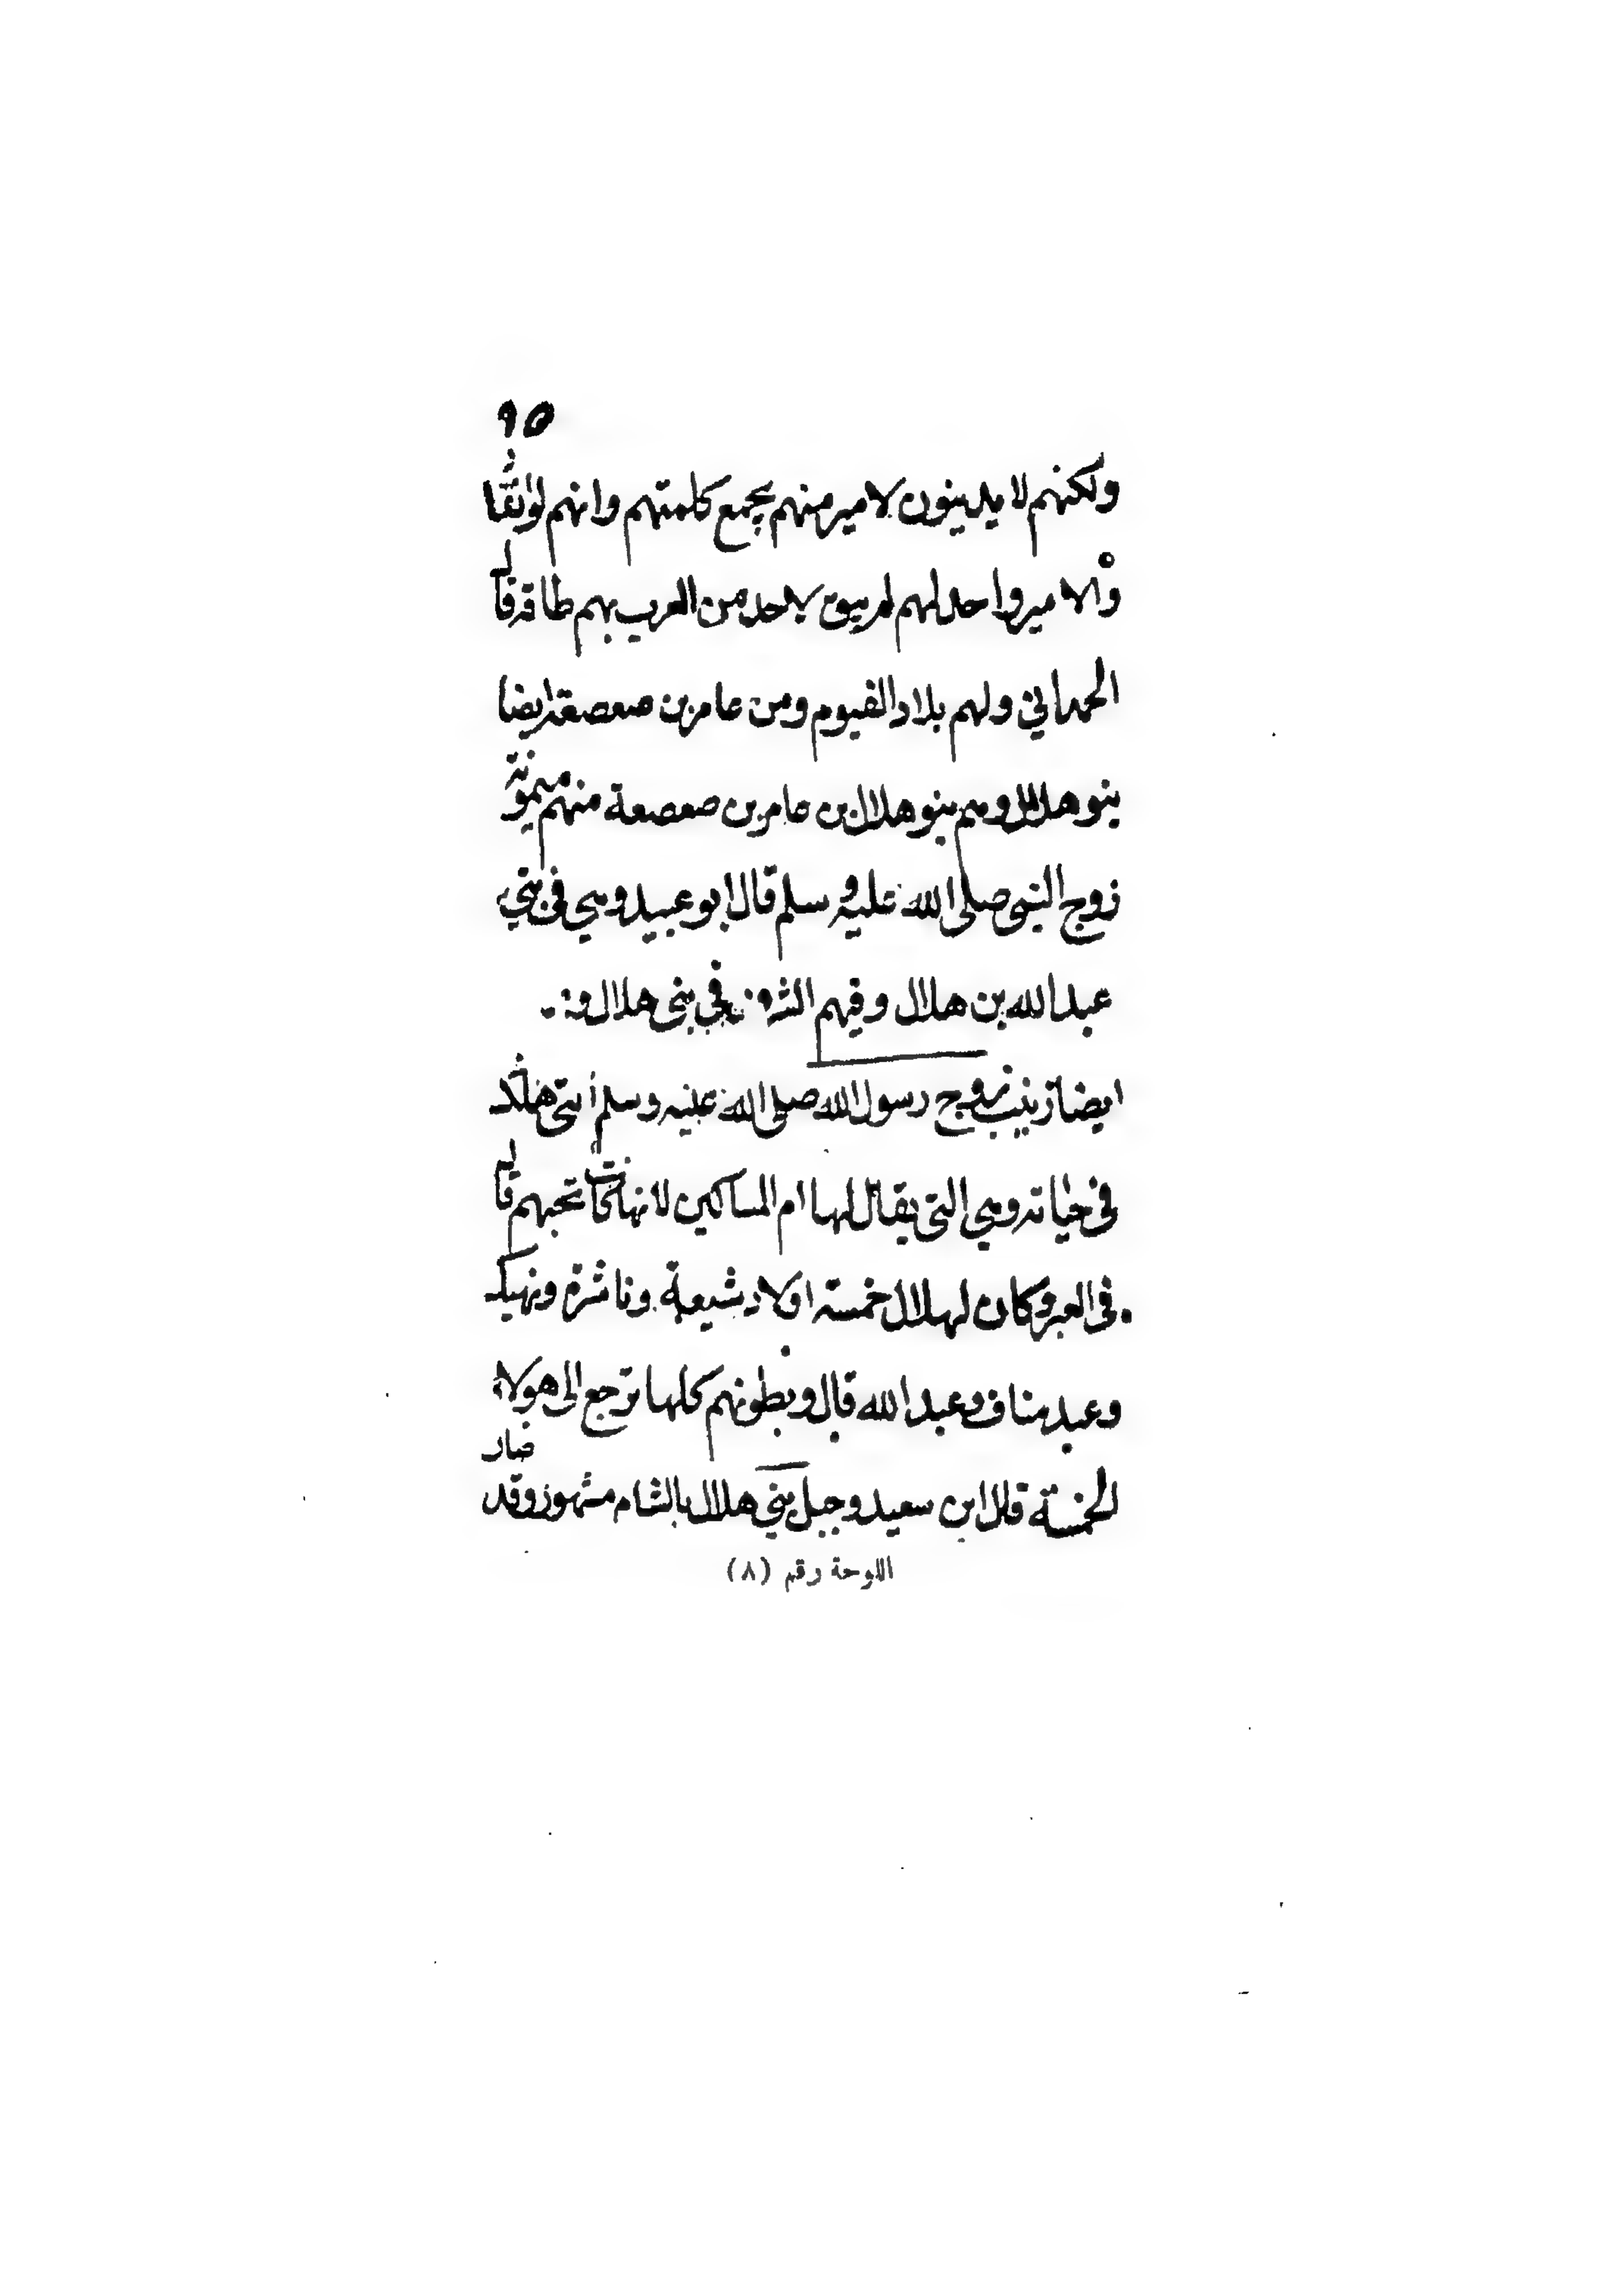 ٩٥
ولكنهم لا يدينون لامير منهم يجمع كلمتهم وانهم لو اتفقوا
والامير واحد لهم لم يبق لاحد من العرب بهم طاقه قال
الحمداني ولهم بلاد الفيوم ومن عامر بن صعصعة ايضا
بنو هلال وهم بنو هلال بن عامر بن صعصعة منهم ميمونة
زوج النبي صلى الله عليه وسلم قال ابو عبيد وهي في بني
عبد الله بن هلال وفيهم الشرف في بني هلال و
ايضا زينب زوج رسول الله صلى الله عليه وسلم التي
في حياته وهي التي يقال لها ام المساكين لانها كانت تحبهم قال
في العبر وكان لهلال خمسة اولاد شيعبة وناشرة ونهيك
وعبد مناف وعبد الله قال وبطونهم كلها ترجع الى هولاء
الخمسة قال ابن سعيد وجبل بني هلال بالشام مشهور وقد صار
اللوحة رقم (٨)